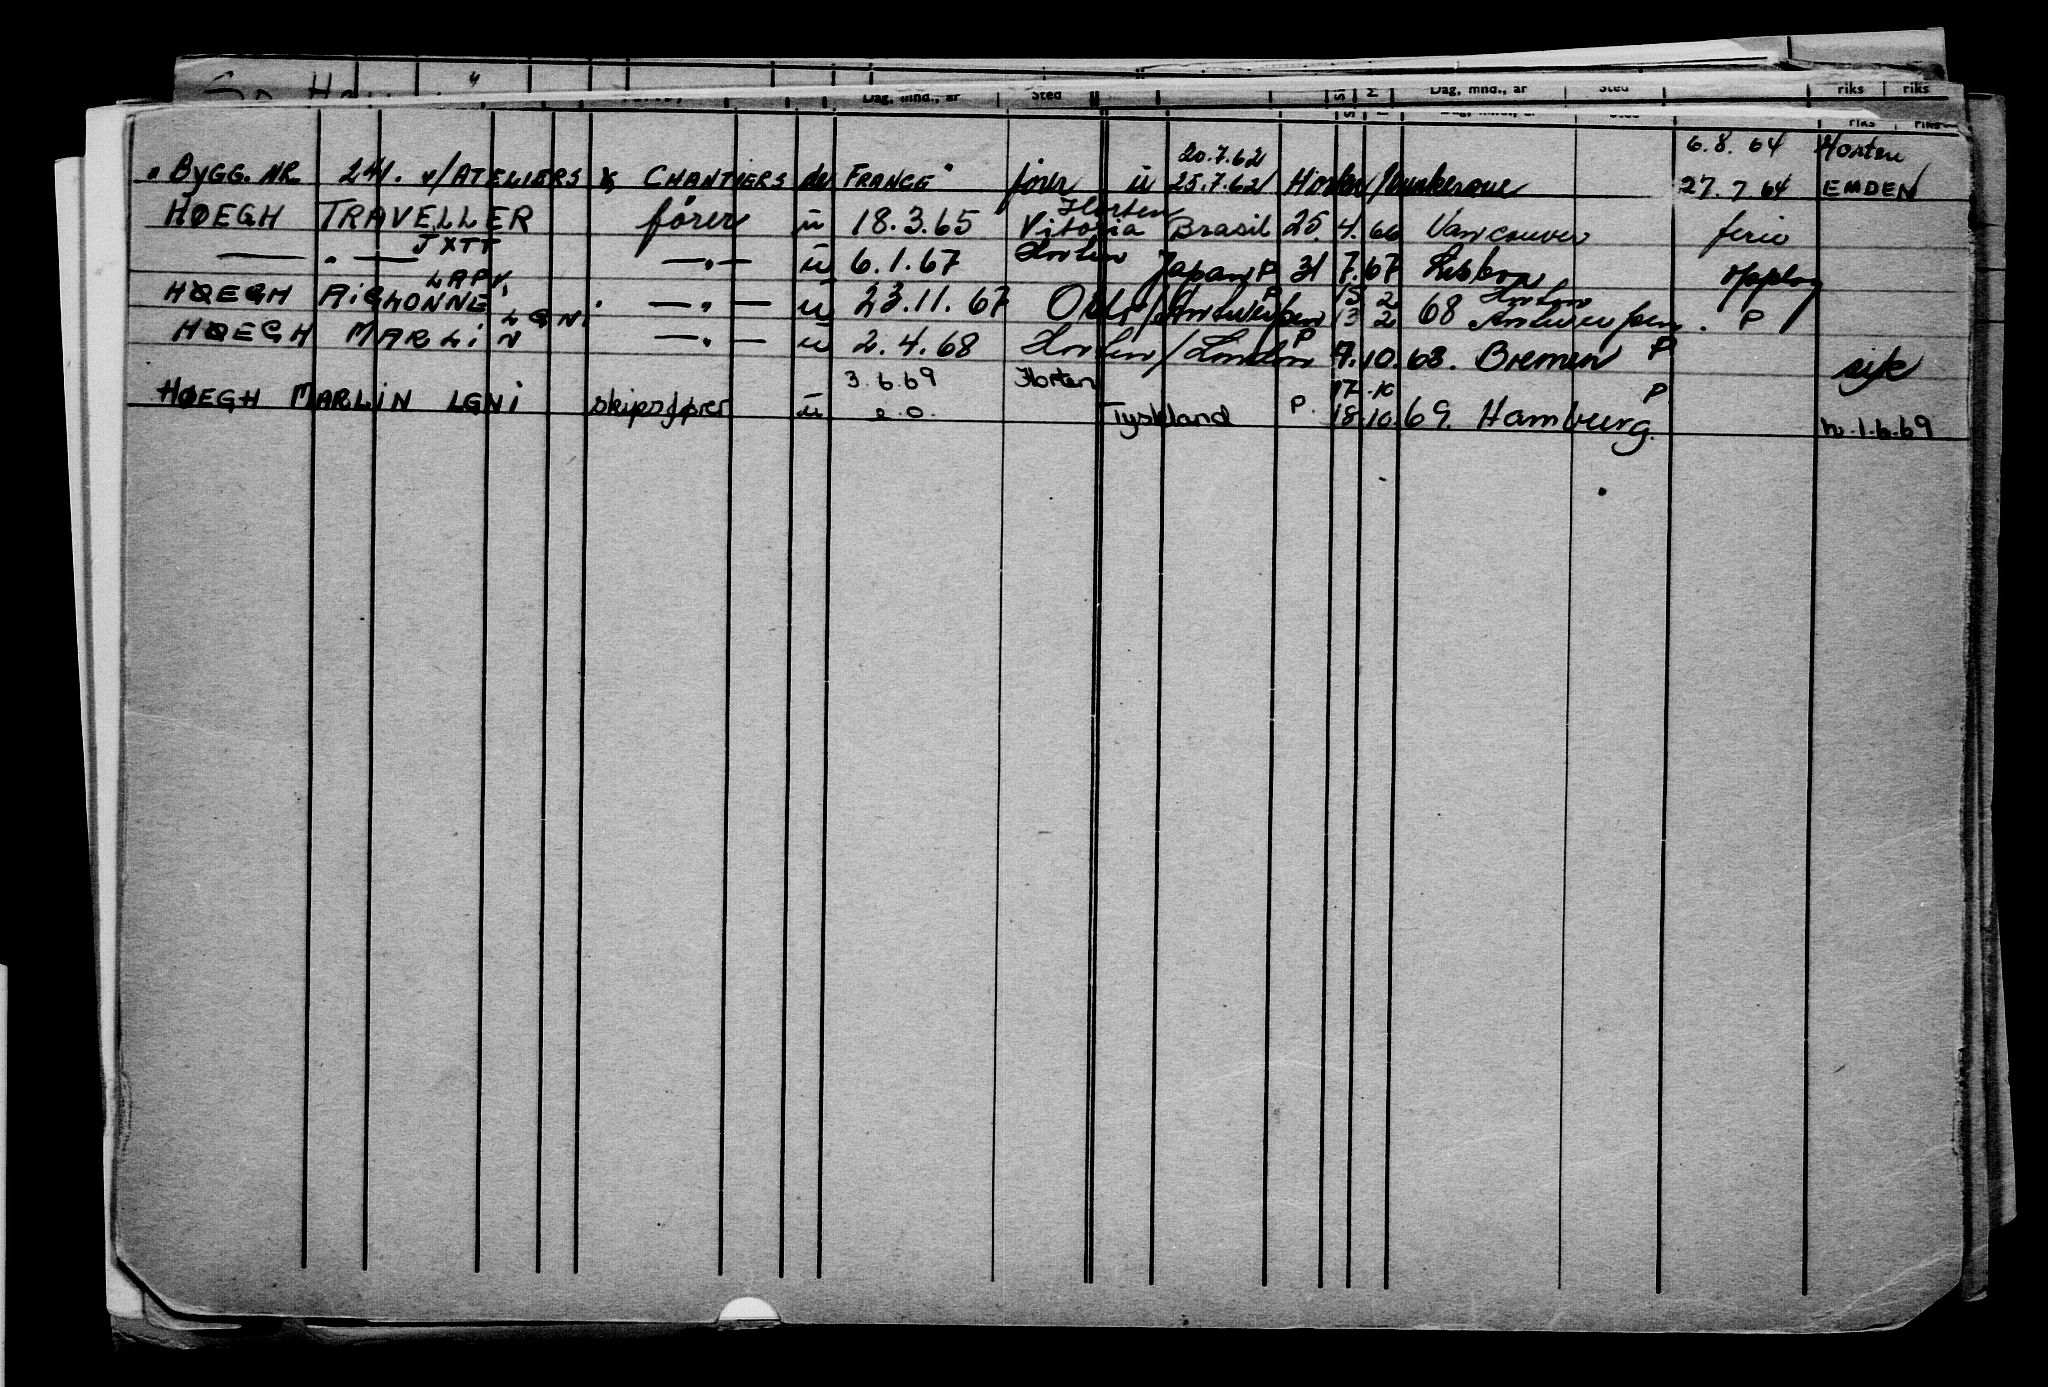 Dag, mnd., år Sted Dag, mnd., år Sted riks riks
riks riks
20.7.62 6.8.64 Horten
"BYGG. NR 241. v/ATELIERS & CHANTIERS de FRANCE" fører u 25.7.62 Horten/Dunkerque 27.7.64 EMDEN
HØEGH TRAVELLER fører u 18.3.65 Vitoria Brasil 25. 4. 66 Vancouver ferie
Horten
JXTT
— " — — " — u 6.1.67 Horten Japan P 31 7. 67 Lisboa opplag
LAPV.
HØEGH AIGLONNE — " — u 23.11.67 Oslo/Antwerpen P 13 2 68 Antwerpen. P
15 2 Horten
LGNI
HØEGH MARLIN — " — u 2.4.68 Horten/London P 9. 10. 68. Bremen P syk
3.6.69 Horten 17 .10 P
HØEGH MARLIN LGNI skipsfører u Tyskland P. 18. 10. 69. Hamburg. 1.6.69